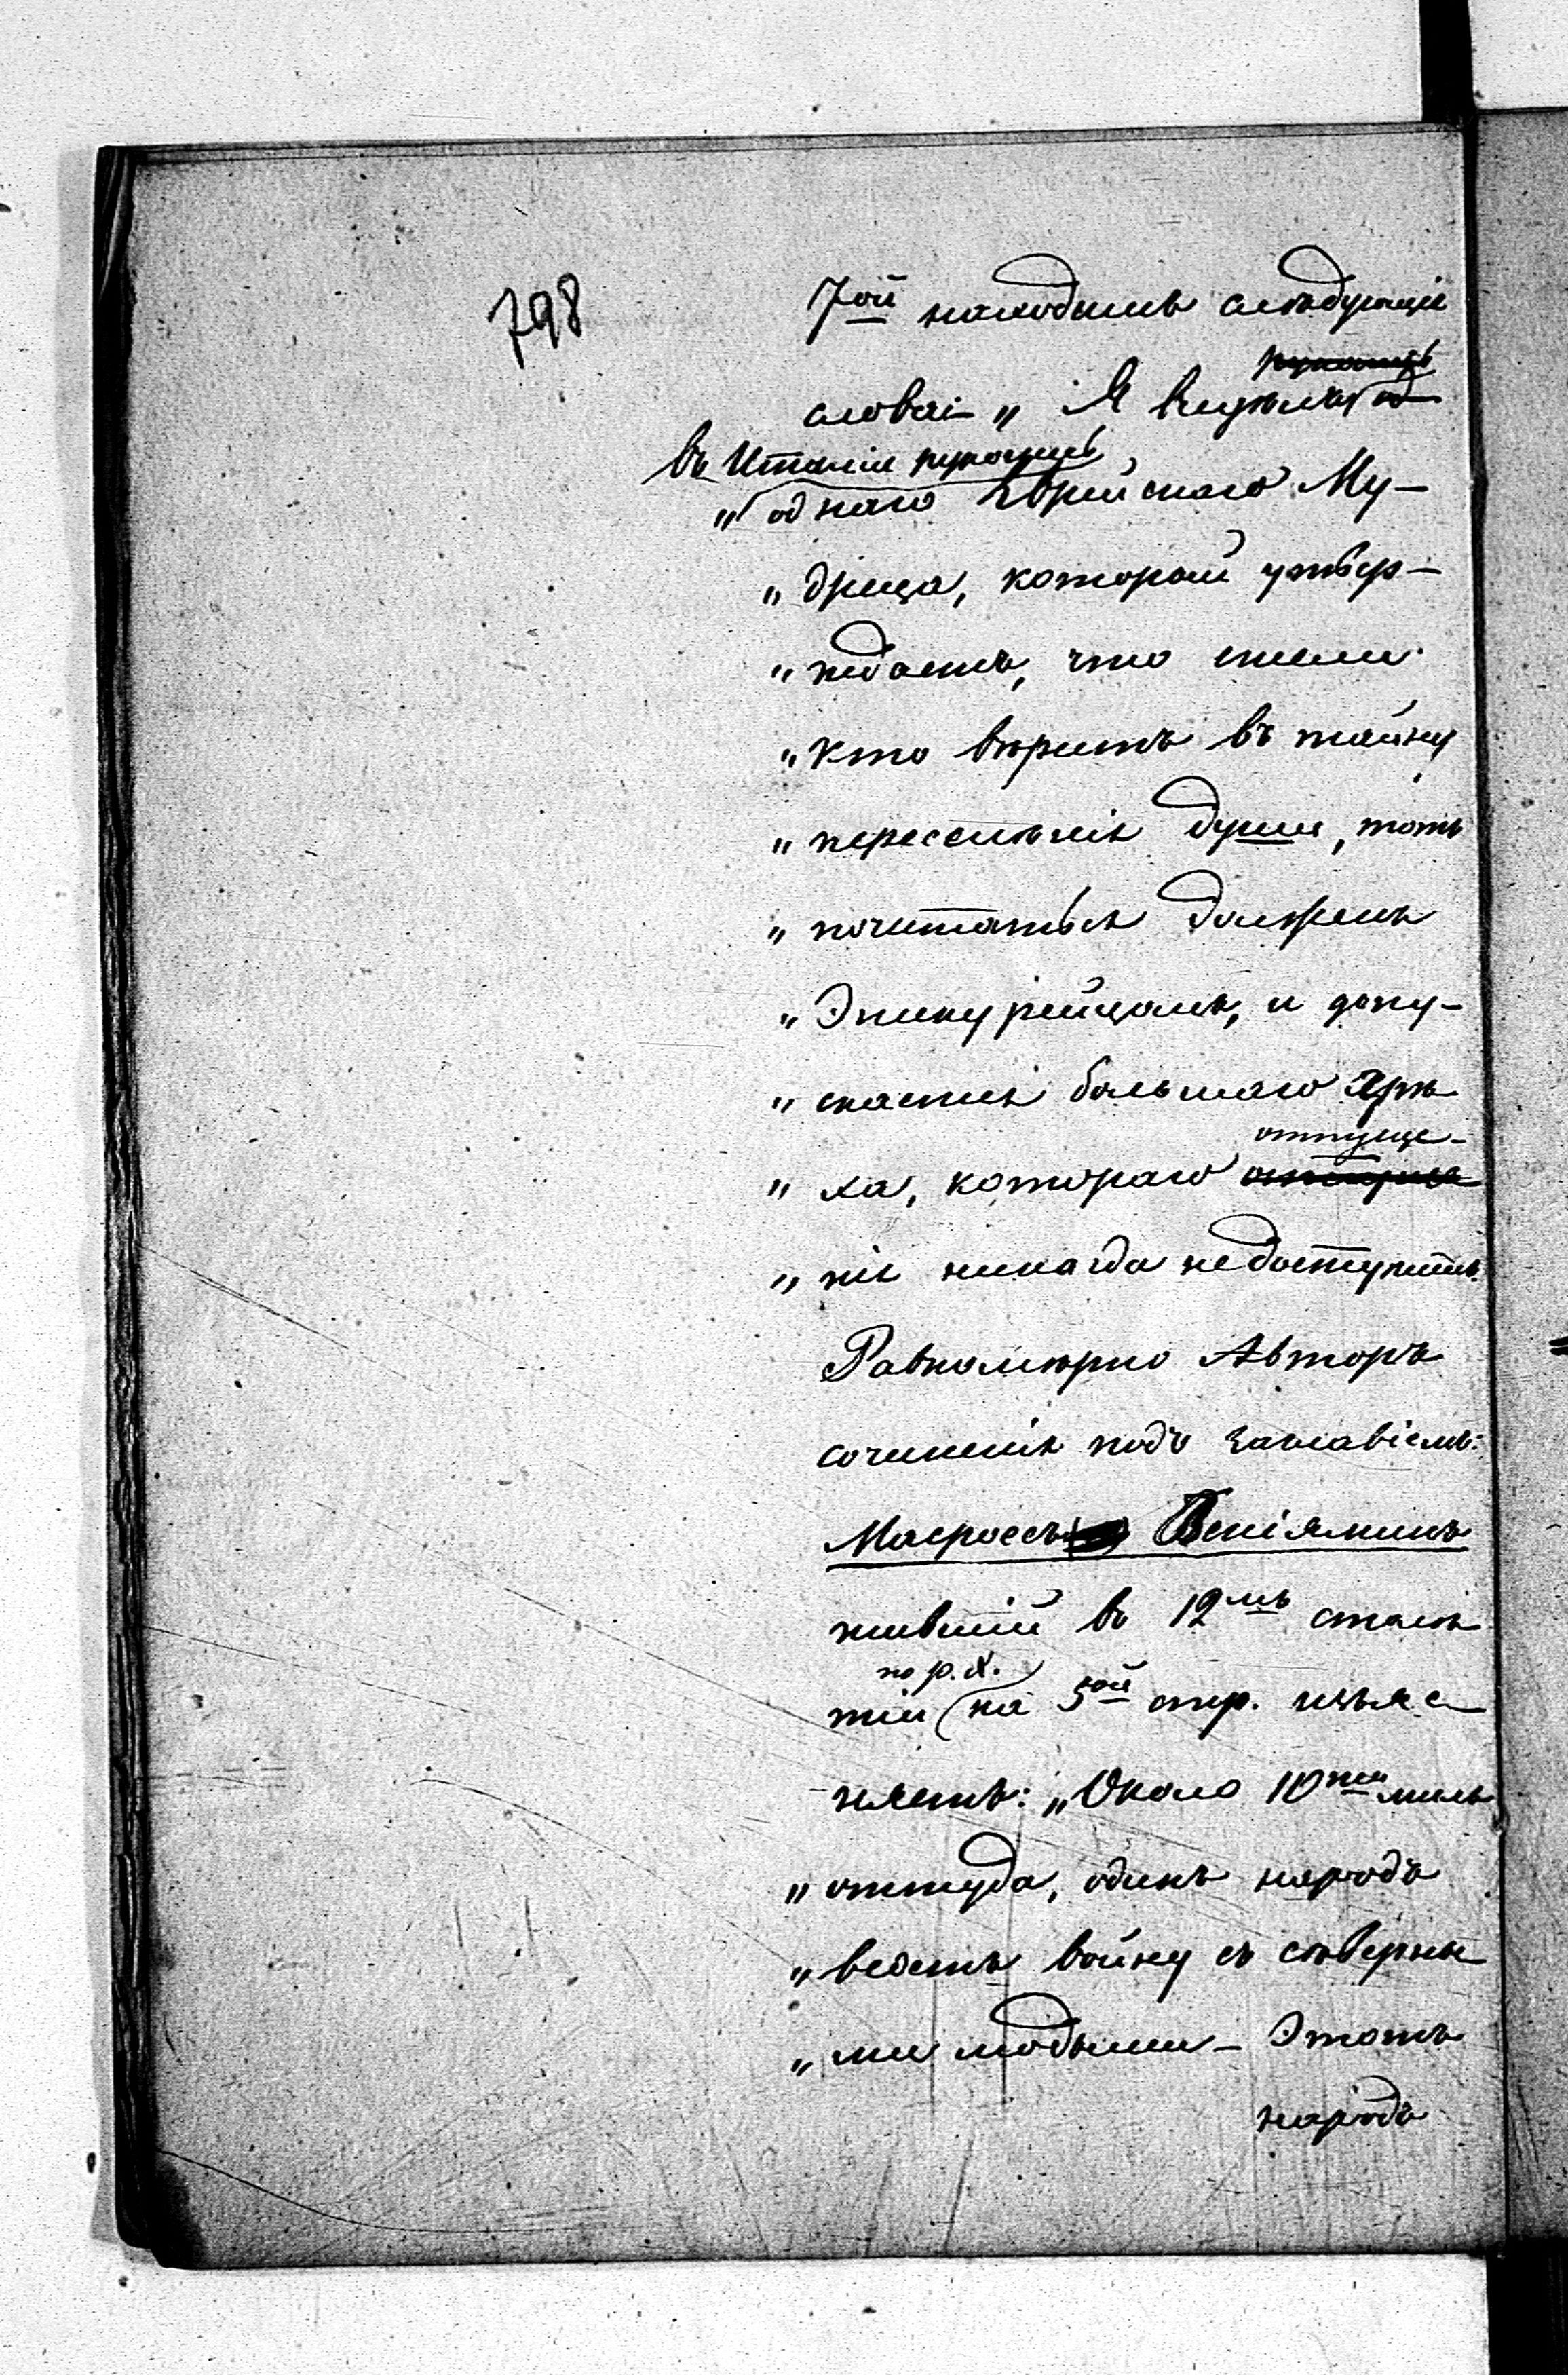 798
7ой находимъ слѣдующіе
рукопись
слова: „ Я видѣлъ од
въ Италіи рукопись
„ однаго Еврейскаго Му-
„ дреца, который утвер-
„ ждаетъ, что если
„ кто вѣритъ въ тайну
„ переселенія души, тотъ
„ почитаться долженъ
„ Эпикурейцомъ, и допу-
„ скаетъ большаго грѣ
отпуще-
„ ха, котораго
„ нія никагда недоступитъ.
Равномѣрно Авторъ
сочиненія подъ заглавіемъ:
Масроесъ Веніяминъ
жившій въ 12мъ столѣ
по р. Х.
тіи на 5ой стр. изъяс
няетъ: „ Около 10ти миль
„ оттуда, одинъ народъ
„ ведетъ войну съ сѣверны
„ ми людьми – Этотъ
народъ